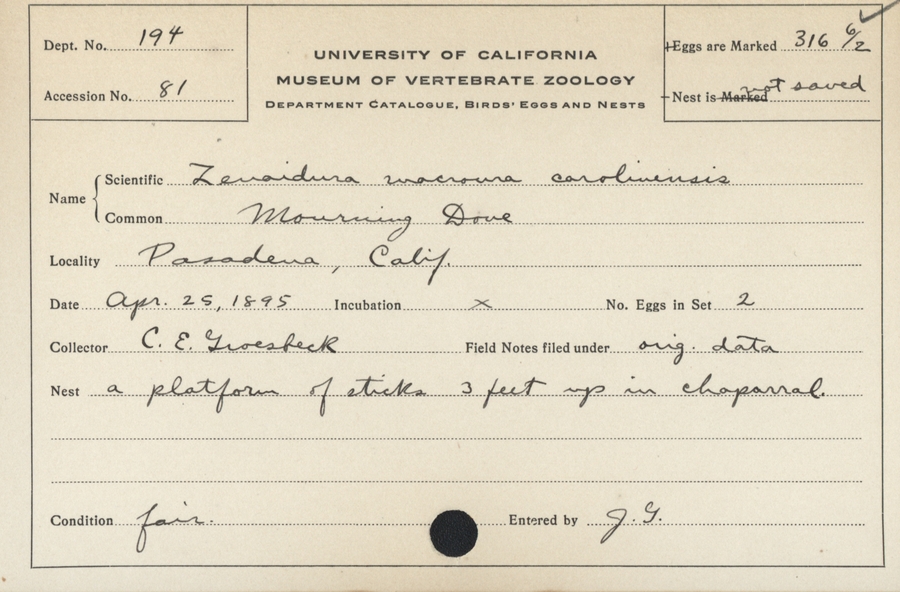 Dept. No. 194
Accession No. 81
UNIVERSITY OF CALIFORNIA
MUSEUM OF VERTEBRATE ZOOLOGY
DEPARTMENT CATALOGUE, BIRDS' EGGS AND NESTS
Eggs are Marked 316 6/2
Nest is Marked not saved
Name
Scientific Zenaidura macroura carolinensis
Common Mourning Dove
Locality Pasadena, Calif.
Date Apr. 25, 1895 Incubation x No. Eggs in Set 2
Collector C. E. Groesbeck Field Notes filed under orig. data
Nest a platform of sticks 3 feet up in chaparral.
Condition fair. Entered by J. G.